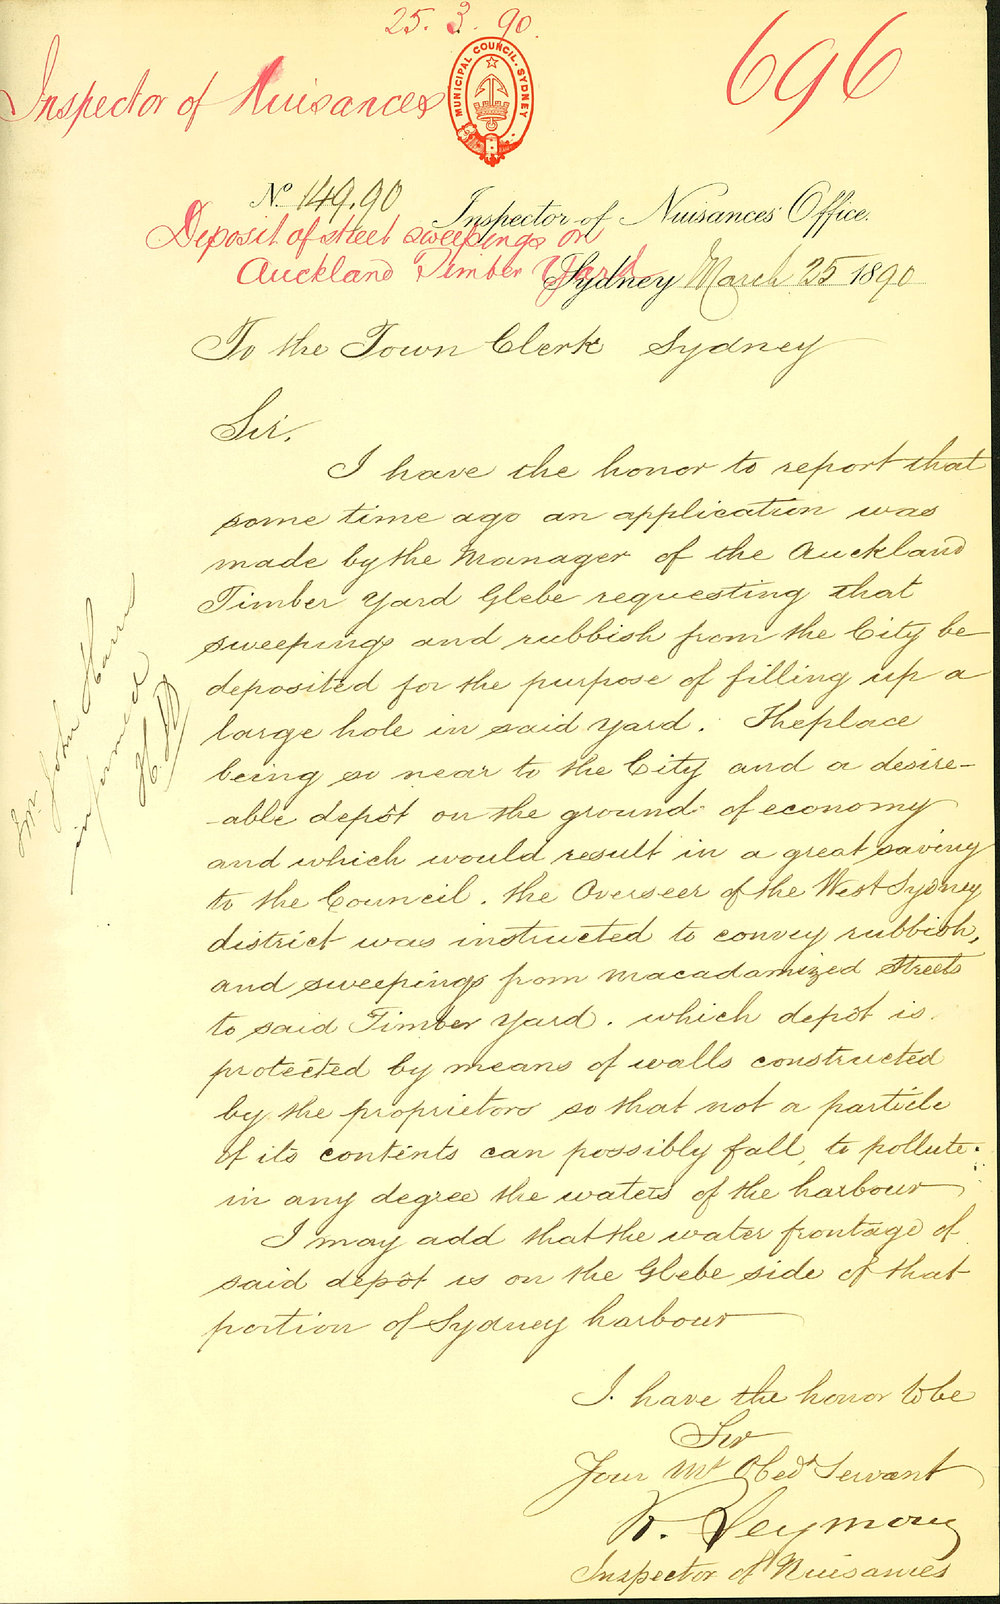 25. 3. 90.
696
Inspector of Nuisances
MUNICIPAL COUNCIL. SYDNEY
No. 149.90
Inspector of Nuisances Office.
Deposit of street sweepings on
Auckland Timber Yard
Sydney March 25 1890
To the Town Clerk Sydney
Sir.
I have the honor to report that
some time ago an application was
made by the Manager of the Auckland
Timber Yard Glebe requesting that
sweepings and rubbish from the City be
deposited for the purpose of filling up a
large hole in said yard. The place
being so near to the City and a desire-
-able depôt on the ground of economy
and which would result in a great saving
to the Council. the Overseer of the West Sydney
district was instructed to convey rubbish,
and sweepings from macadamized streets
to said Timber Yard. which depôt is
protected by means of walls constructed
by the proprietors so that not a particle
of its contents can possibly fall, to pollute
in any degree the waters of the harbour
I may add that the water frontage of
said depôt is on the Glebe side of that
portion of Sydney harbour
I have the honor to be
Sir
Your Mt Obedt Servant
R. Seymour
Inspector of Nuisances
Mr John Harris
informed